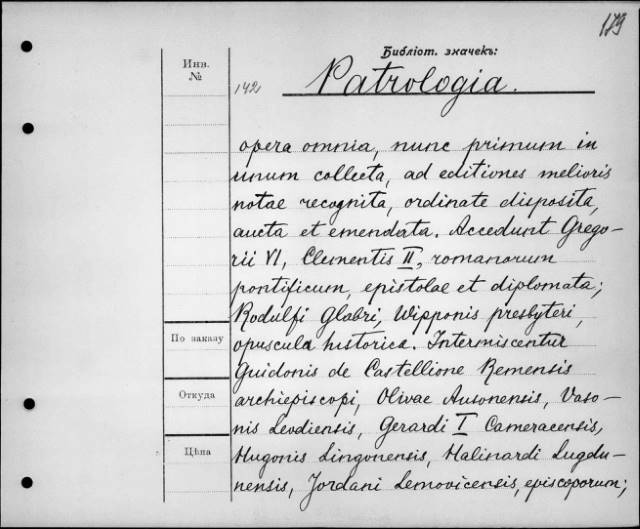 179
Библіот. значекъ:
Инв.
№
142
Patrologia.
opera omnia, nunc primum in
unum collecta, ad editiones melioris
notae recognita, ordinate disposita,
aucta et emendata. Accedunt Grego-
rii VI, Clementis II, romanorum
pontificum, epistolae et diplomata;
Rodulfi Glabri, Wipponis presbyteri,
По заказу
opuscula historica. Intermiscentur
Guidonis de Castellione Remensis
Откуда
archiepiscopi, Olivae Ausonensis, Vaso-
nis Leodiensis, Gerardi I Cameracensis,
Цѣна
Hugonis Lingonensis, Halinardi Lugdu-
nensis, Jordani Lemovicensis, episcoporum;